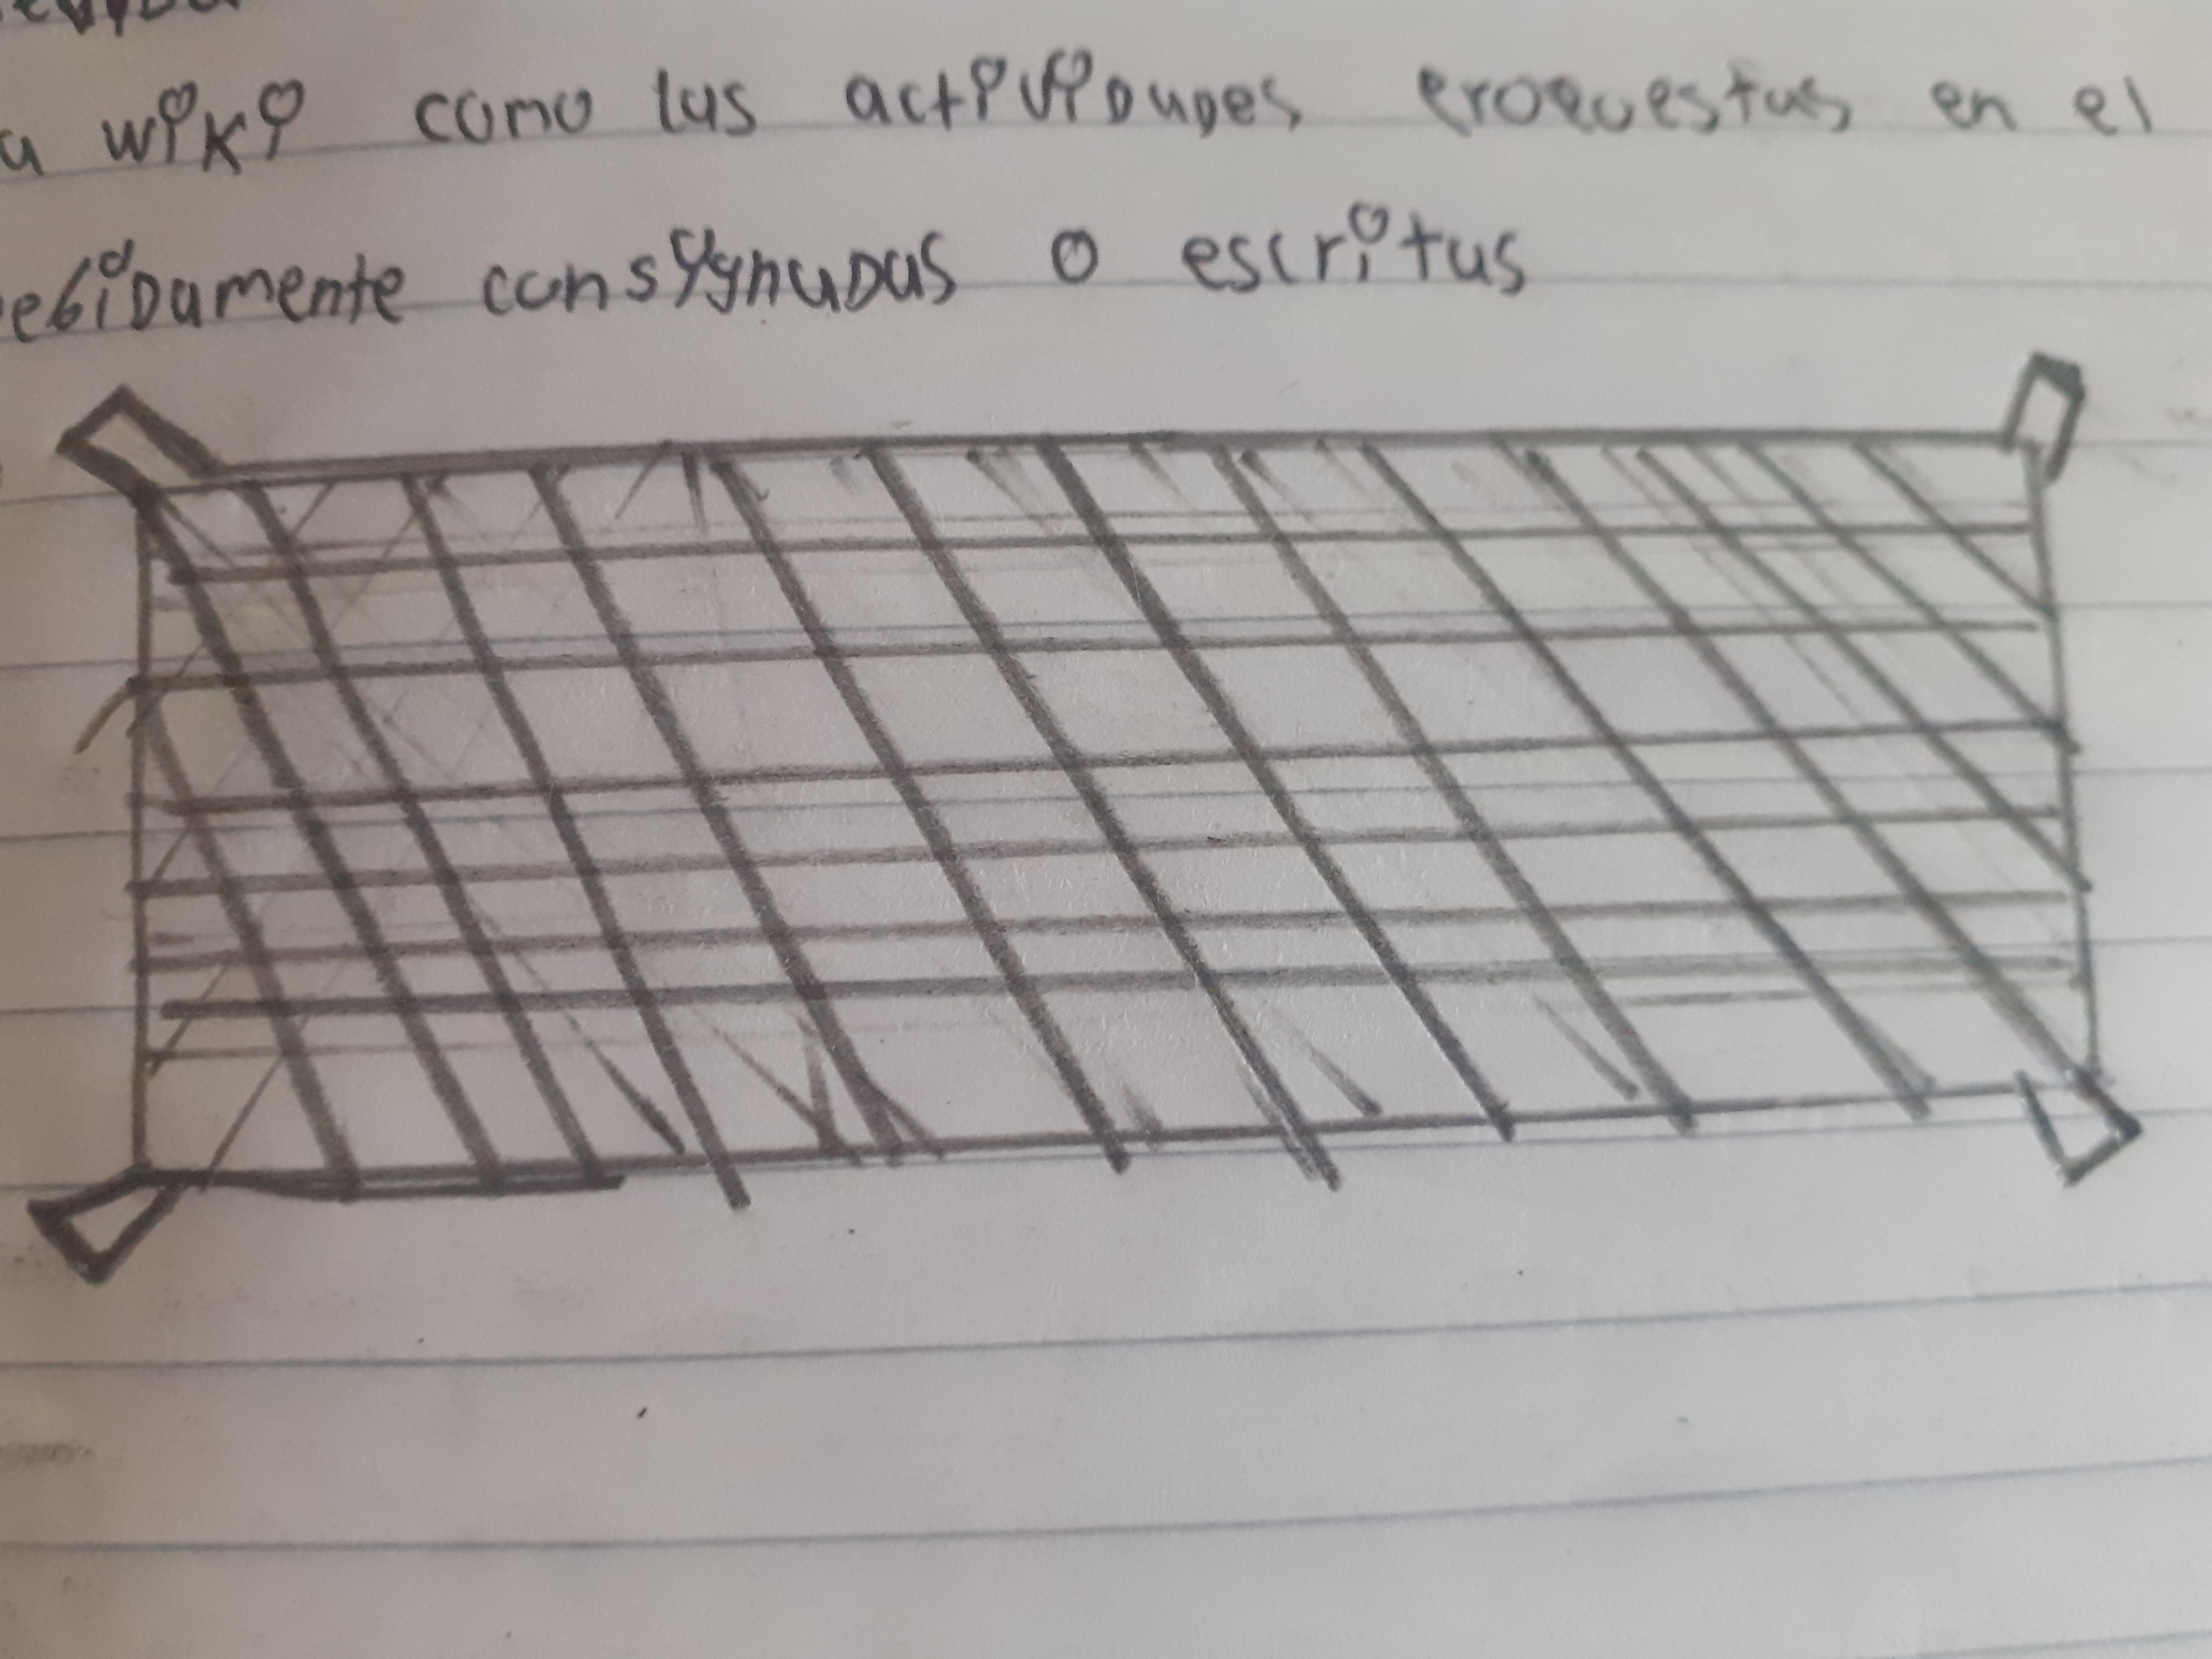 a wiki como las actividades propuestas en el
ebidamente consignadas o escritas